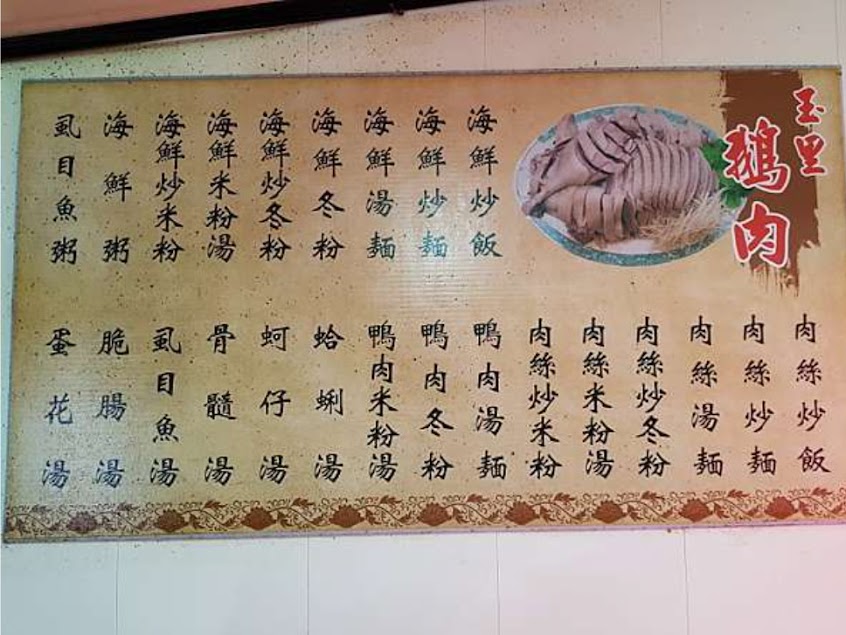 玉里
鵝肉
海鮮炒飯
海鮮炒麵
海鮮湯麵
海鮮冬粉
海鮮炒冬粉
海鮮米粉湯
海鮮炒米粉
海鮮粥
虱目魚粥
肉絲炒飯
肉絲炒麵
肉絲湯麵
肉絲炒冬粉
肉絲米粉湯
肉絲炒米粉
鴨肉湯麵
鴨肉冬粉
鴨肉米粉湯
蛤蜊湯
蚵仔湯
骨髓湯
虱目魚湯
脆腸湯
蛋花湯